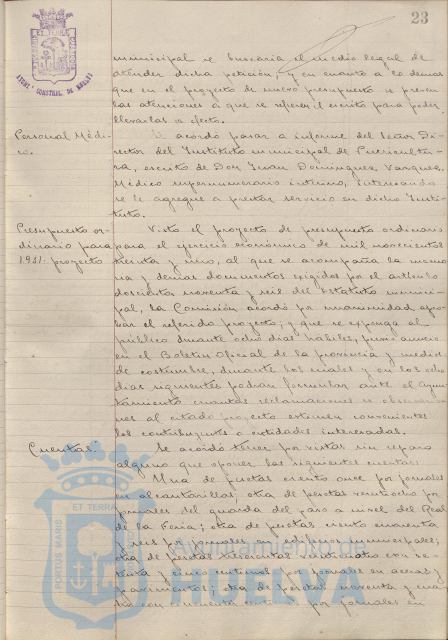 23
municipal se buscaria el medio legal de
atender dicha petición, y en cuanto a lo demas
que en el proyecto de nuevo presupuesto se preven
las atenciones a que se refiere el escrito para poder
llevarlas a efecto.
Personal Médi-
co.
Se acordó pasar a informe del Señor Di-
rector del Instituto municipal de Puericultu-
ra, escrito de Don Juan Dominguez Vazquez,
Médico supernumerario interino, interesando
se le agregue a prestar servicio en dicho Insti-
tuto.
Presupuesto or-
dinario para
1931: proyecto
Visto el proyecto de presupuesto ordinario
para el ejercicio económico de mil novecientos
treinta y uno, al que se acompaña la memo-
ria y demas documentos exigidos por el articulo
doscientos noventa y seis del Estatuto munici-
pal, la Comisión acordó por unanimidad apro-
bar el referido proyecto; y que se exponga al
público durante ocho dias habiles, previo anuncio
en el Boletin Oficial de la provincia y medios
de costumbre, durante los cuales y en los ocho
dias siguientes podran formular ante el Ayun-
tamiento cuantas reclamaciones u observacio-
nes al citado proyecto estimen convenientes
los contribuyentes o entidades interesadas.
Cuentas.
Se acordó tener por vistas sin reparo
alguno que oponer las siguientes cuentas:
Una de pesetas ciento once por jornales
en alcantarillas; otra de pesetas veintiocho por
jornales del guarda del paso a nivel del Real
de la Feria; otra de pesetas ciento cincuenta
y seis por jornales en edificios municipales;
otra de pesetas trescientas cuatro con se-
tenta y cinco centimos por jornales en aceras y
pavimentos; otra de pesetas noventa y cua-
tro con cincuenta centimos por jornales en
PORTUS MARIS ET TERRAE
HUELVA